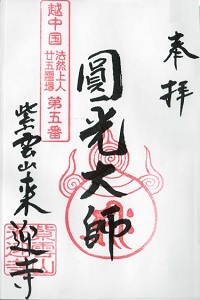 奉拝
圓光大師
越中国
法然上人
廿五霊場
第五番
紫雲山来迎寺